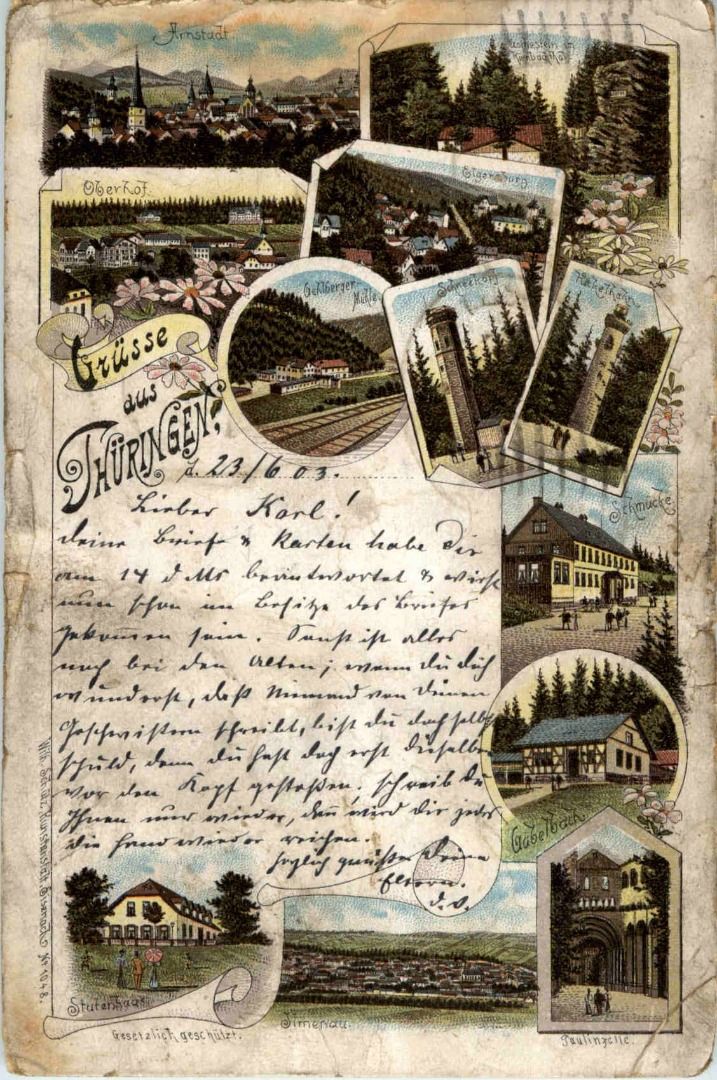 Arnstadt
Oberhof.
Elgersburg
Gehlberger
Mühle
Schneekopf
Kickelhahn
Grüsse
aus
THÜRINGEN,
d. 23/6 03.
Lieber Karl!
Deine Briefe & Karten habe Dir
am 14 d Mts beantwortet & wirst
nun schon im Besitze des Briefes
gekommen sein. Sonst ist alles
noch bei den Alten; wenn Du Dich
wunderst, daß Niemand von Deinen
Geschwistern schreibt, bist Du doch selbst
schuld, denn Du hast doch erst dieselben
vor den Kopf gestoßen. Schreib Du
Ihnen nur wieder, dann wird Dir jedes
die Hand wieder reichen.
herzlich grüßen Deine
Eltern.
d. O.
Schmücke
Gabelbach
Stutenhaus
Jlmenau.
Paulinzelle.
Gesetzlich geschützt.
Kunstanstalt, Eisenach. No 1048.